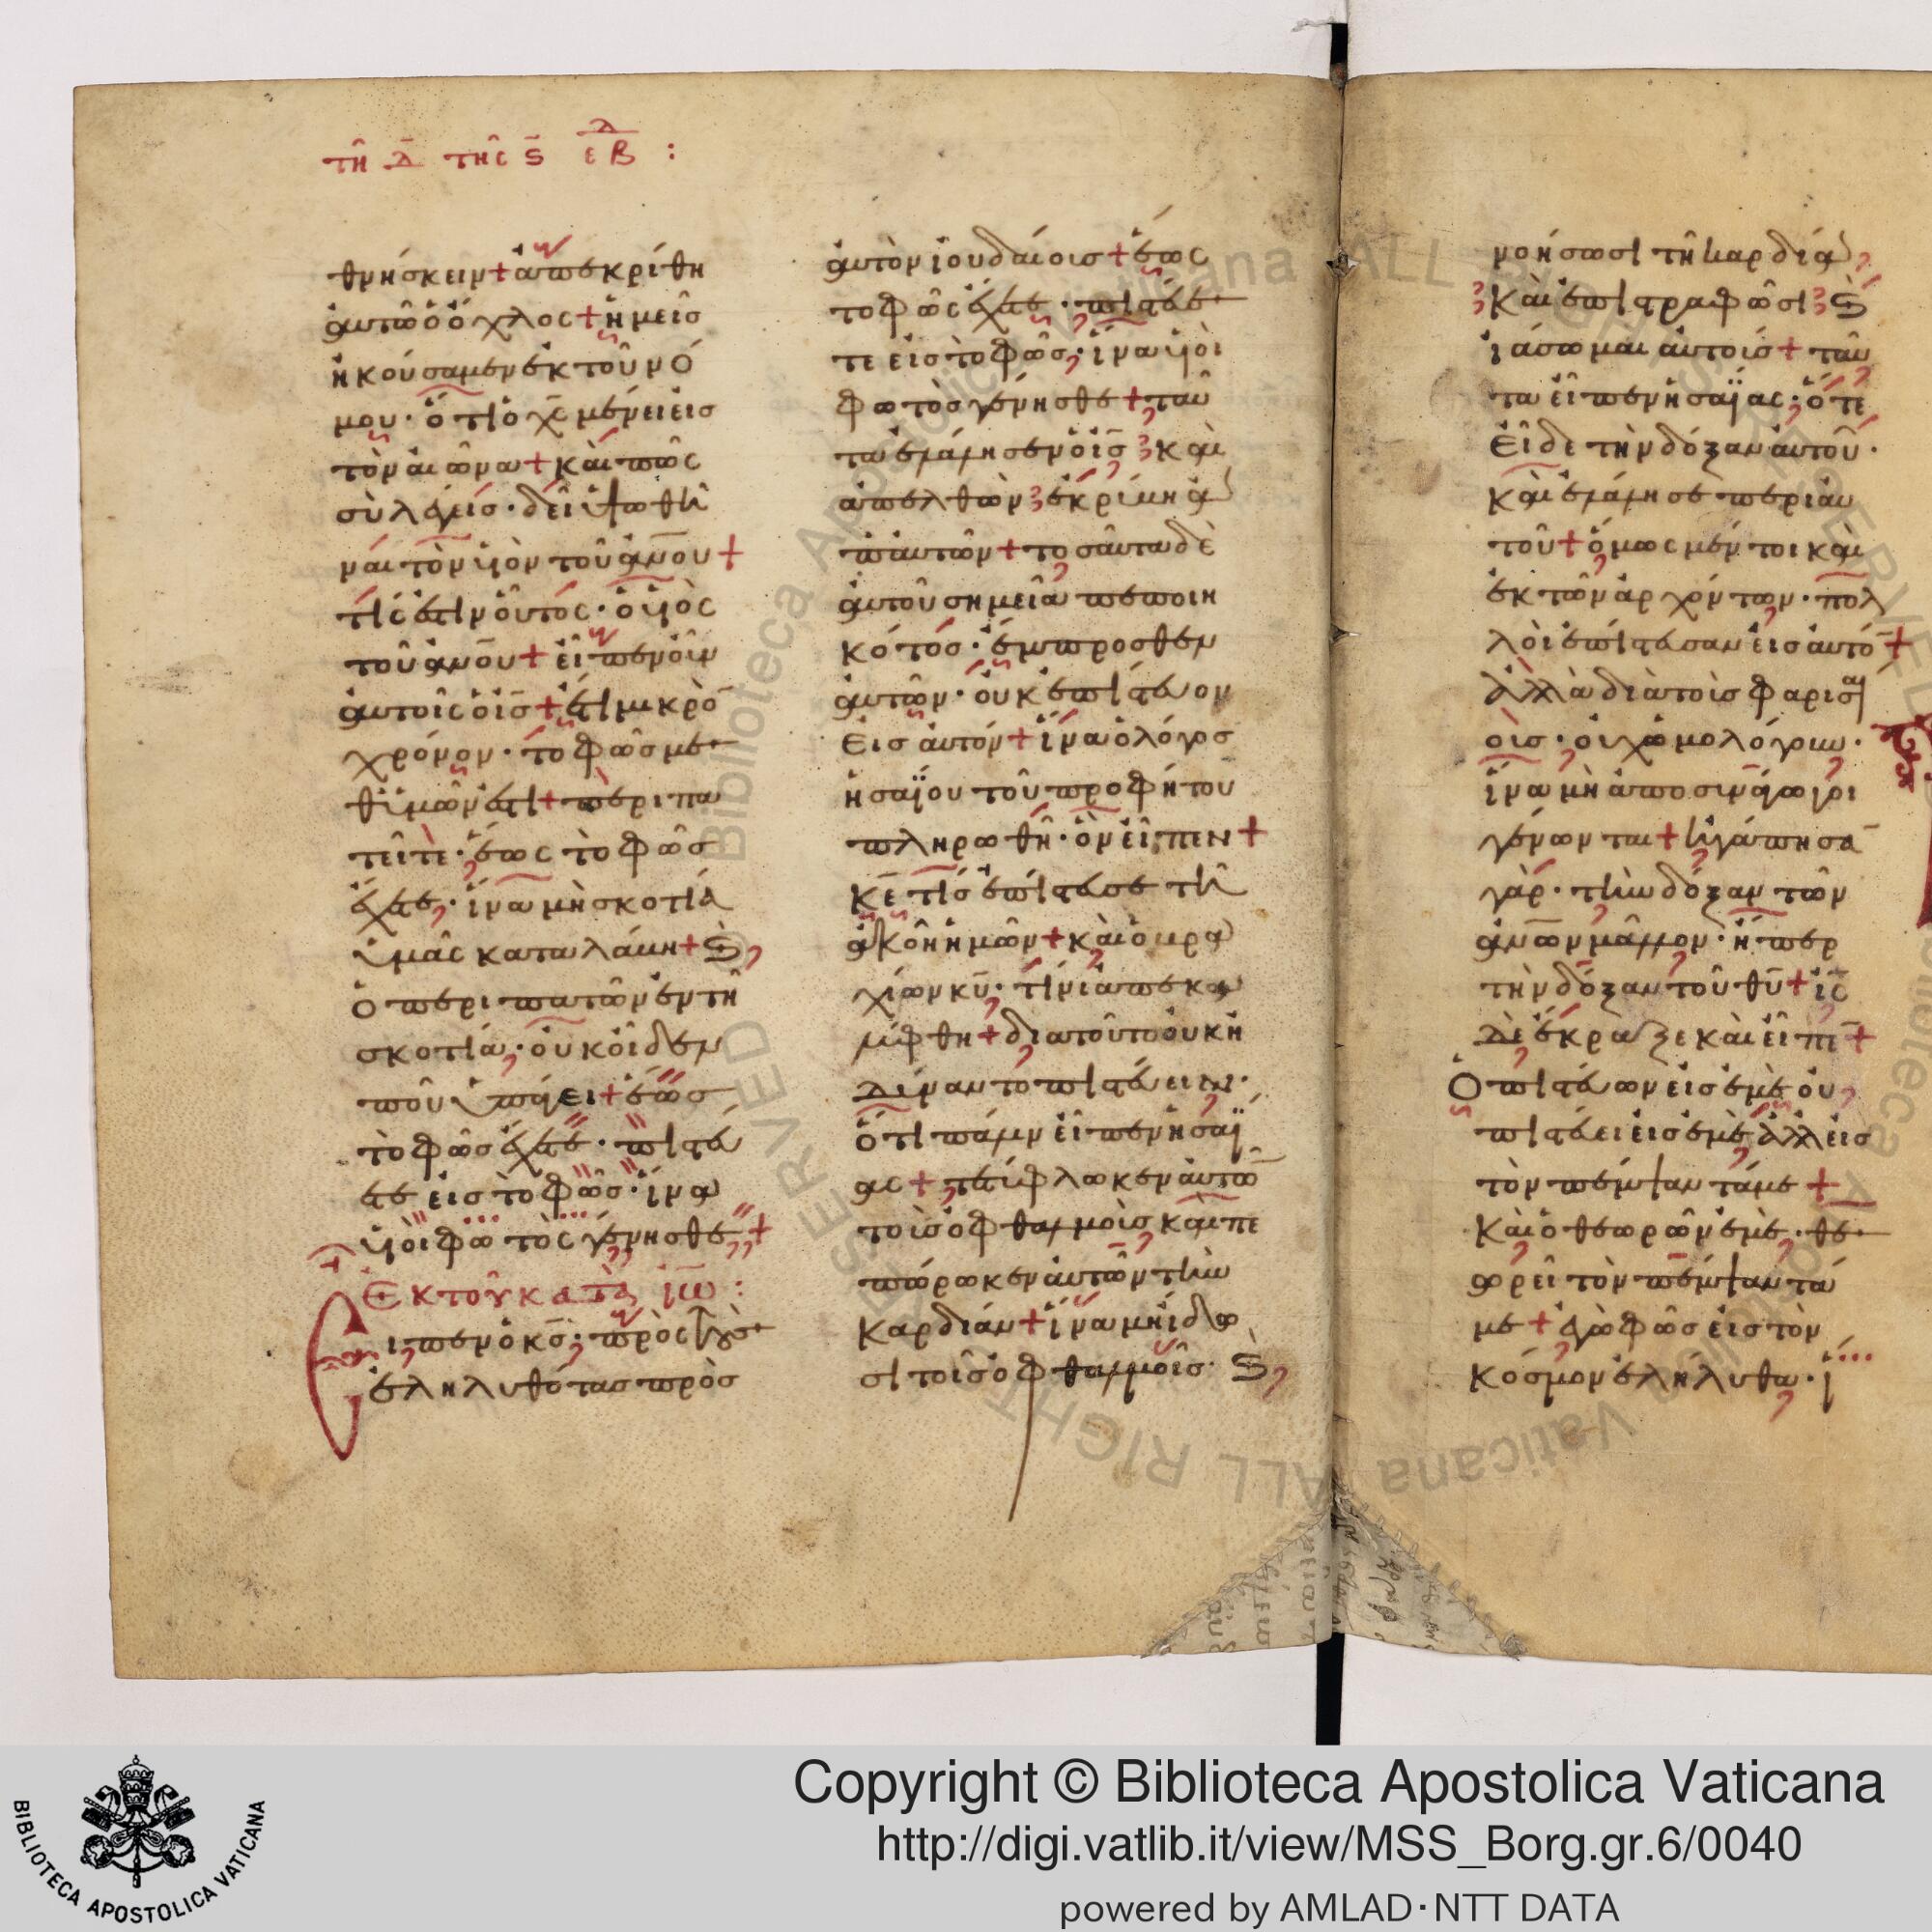 τῆ δ̄ τῆς ς̄ εβδ :
θνήσκειν + ἀπεκρίθη
αὐτῶ ὁ ὄχλος + ἡμεῖσ
ἠκούσαμεν ἐκ τοῦ νό
μου · ὅτι ὁ χ̅ς̅ μένει εἰσ
τὸν αἰῶνα + καὶ πῶς
σὺ λέγεισ · δεῖ ὑψωθῆ
ναι τὸν υἱὸν τοῦ α̅ν̅ο̅υ̅ +
τίς ἐστιν οὗτος · ὁ υἱὸς
τοῦ α̅ν̅ο̅υ̅ + εἶπεν οὖν
αὐτοῖς ὁ ι̅ς̅ + ἔτι μικρὸ̅
χρόνον · τὸ φῶσ με
θ' ὑμῶν ἐστι + περιπα
τεῖτε · ἕως τὸ φῶσ
ἔχετε · ἵνα μὴ σκοτία
ὑμᾶς καταλάβη + ϗ
ὁ περιπατῶν ἐν τῆ
σκοτία · οὐκ οἶδεν
ποῦ ὑπάγει + ἕωσ
τὸ φῶσ ἔχετε · πιστεύ
ετε εἰσ τὸ φῶσ · ἵνα
υἱοὶ φωτὸς γένησθε +
Ἐκ τοῦ κατὰ ἰω :
Εἶπεν ὁ κ̅ς̅ · πρὸς τοὺσ
ἐληλυθότασ πρὸσ
αὐτὸν ἰουδαίοισ + ἕως
τὸ φῶς ἔχετε · πιστεύε
τε εἰσ τὸ φῶσ · ἵνα υἱοὶ
φωτὸσ γένησθε + ταῦ
τα ἐλάλησεν ὁ ι̅ς̅ καὶ
ἀπελθὼν ἐκρύβη ἀ
π' αὐτῶν + τοσαῦτα δὲ
αὐτοῦ σημεῖα πεποιη
κότος · ἔμπροσθεν
αὐτῶν · οὐκ ἐπίστευον
εἰσ αὐτόν + ἵνα ὁ λόγοσ
ἠσαΐου τοῦ προφήτου
πληρωθῆ · ὃν εἶπεν +
κ̅ε̅ τίσ ἐπίστευσε τῆ
ἀκοῆ ἡμῶν + καὶ ὁ βρα
χίων κ̅υ̅ · τίνι ἀπεκα
λύφθη + διατοῦτο οὐκ ἠ
δύναντο πιστεύειν ·
ὅτι πάλιν εἶπεν ἠσαΐ
ας + τετύφλωκεν αὐτῶ̅
τοὺσ ὀφθαλμοὺσ καὶ πε
πώρωκεν αὐτῶν τὴν
καρδίαν + ἵνα μὴ ἴδω
σι τοῖσ ὀφθαλμοῖσ · ϗ
νοήσωσι τῆ καρδία
καὶ ἐπιστραφῶσι ϗ
ἰάσωμαι αὐτούσ + ταῦ
τα εἶπεν ἠσαΐας · ὅτε
εἶδε τὴν δόξαν αὐτοῦ ·
καὶ ἐλάλησε περὶ αὐ
τοῦ + ὅμως μέντοι καὶ
ἐκ τῶν ἀρχόντων · πολ
λοὶ ἐπίστευσαν εἰσ αὐτό̅ +
ἀλλὰ διὰ τοὺσ φαρισαί
ουσ · οὐχ ὡμολόγουν ·
ἵνα μὴ ἀποσυνάγωγοι
γένωνται + ἠγάπησα̅
γὰρ · τὴν δόξαν τῶν
α̅ν̅ω̅ν̅ μᾶλλον · ἤπερ
τὴν δόξαν τοῦ θ̅υ̅ + ι̅ς̅
δὲ ἔκραξε καὶ εἶπε̅ +
Ὁ πιστεύων εἰσ ἐμὲ οὐ
πιστεύει εἰσ ἐμὲ ἀλλ' εἰσ
τὸν πέμψαντά με +
Καὶ ὁ θεωρῶν ἐμὲ · θε
ωρεῖ τὸν πέμψαντά
με + ἐγὼ φῶσ εἰσ τὸν
κόσμον ἐλήλυθα · ἵ
Copyright © Biblioteca Apostolica Vaticana
http://digi.vatlib.it/view/MSS_Borg.gr.6/0040
powered by AMLAD·NTT DATA
BIBLIOTECA APOSTOLICA VATICANA